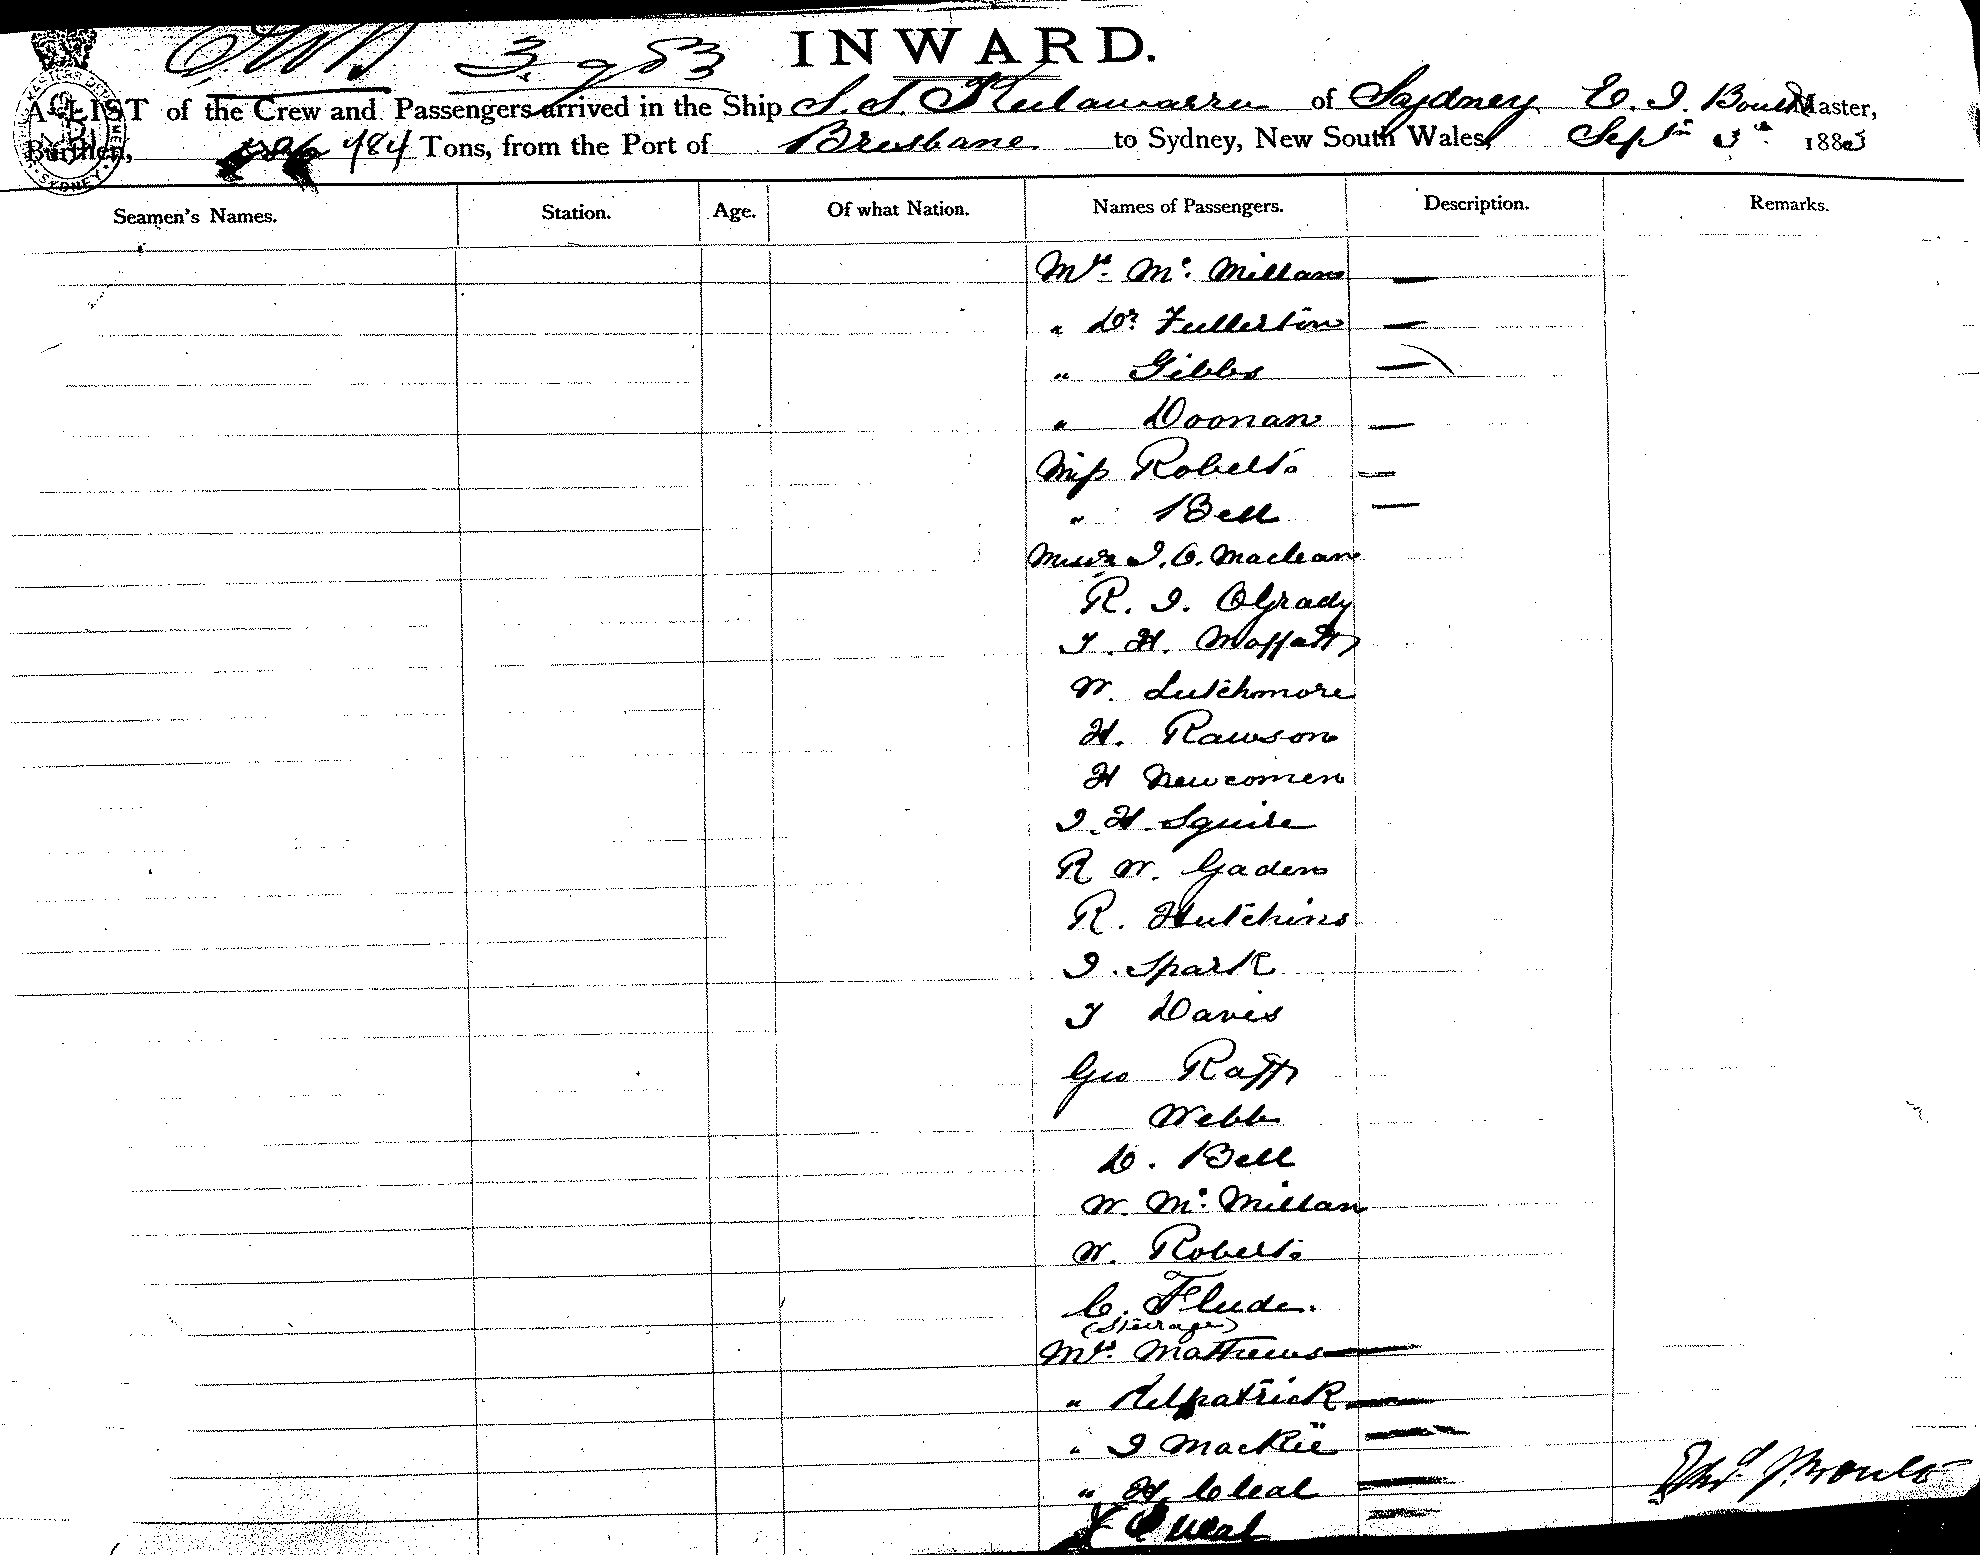 3. 9 83
INWARD.
A LIST of the Crew and Passengers arrived in the Ship S. S. Keilawarra of Saydney E. I. Boult Master,
Burthen, 484 Tons, from the Port of Brisbane to Sydney, New South Wales, Septr 3rd 1883
Seamen's Names. Station. Age. Of what Nation. Names of Passengers. Description. Remarks.
Mrs. Mc. Millan —
" Dr. Fullerton —
" Gibbs —
" Doonan —
Miss Roberts —
" Bell —
Messrs I. C. Maclean
R. I. OGrady
T. H. Moffatt
W. Lutchmore
H. Rawson
H Newcomen
I. H. Squire
R W. Gaden
R. Hutchins
I. Spark
T Davis
Geo Raff
Webb
D. Bell
W. Mc. Millan
W. Roberts
C. Flude.
(Steerage)
Mrs. Mathews —
" Kilpatrick —
" I Mackie —
" H. Cleal —
Edwd. J. Boult